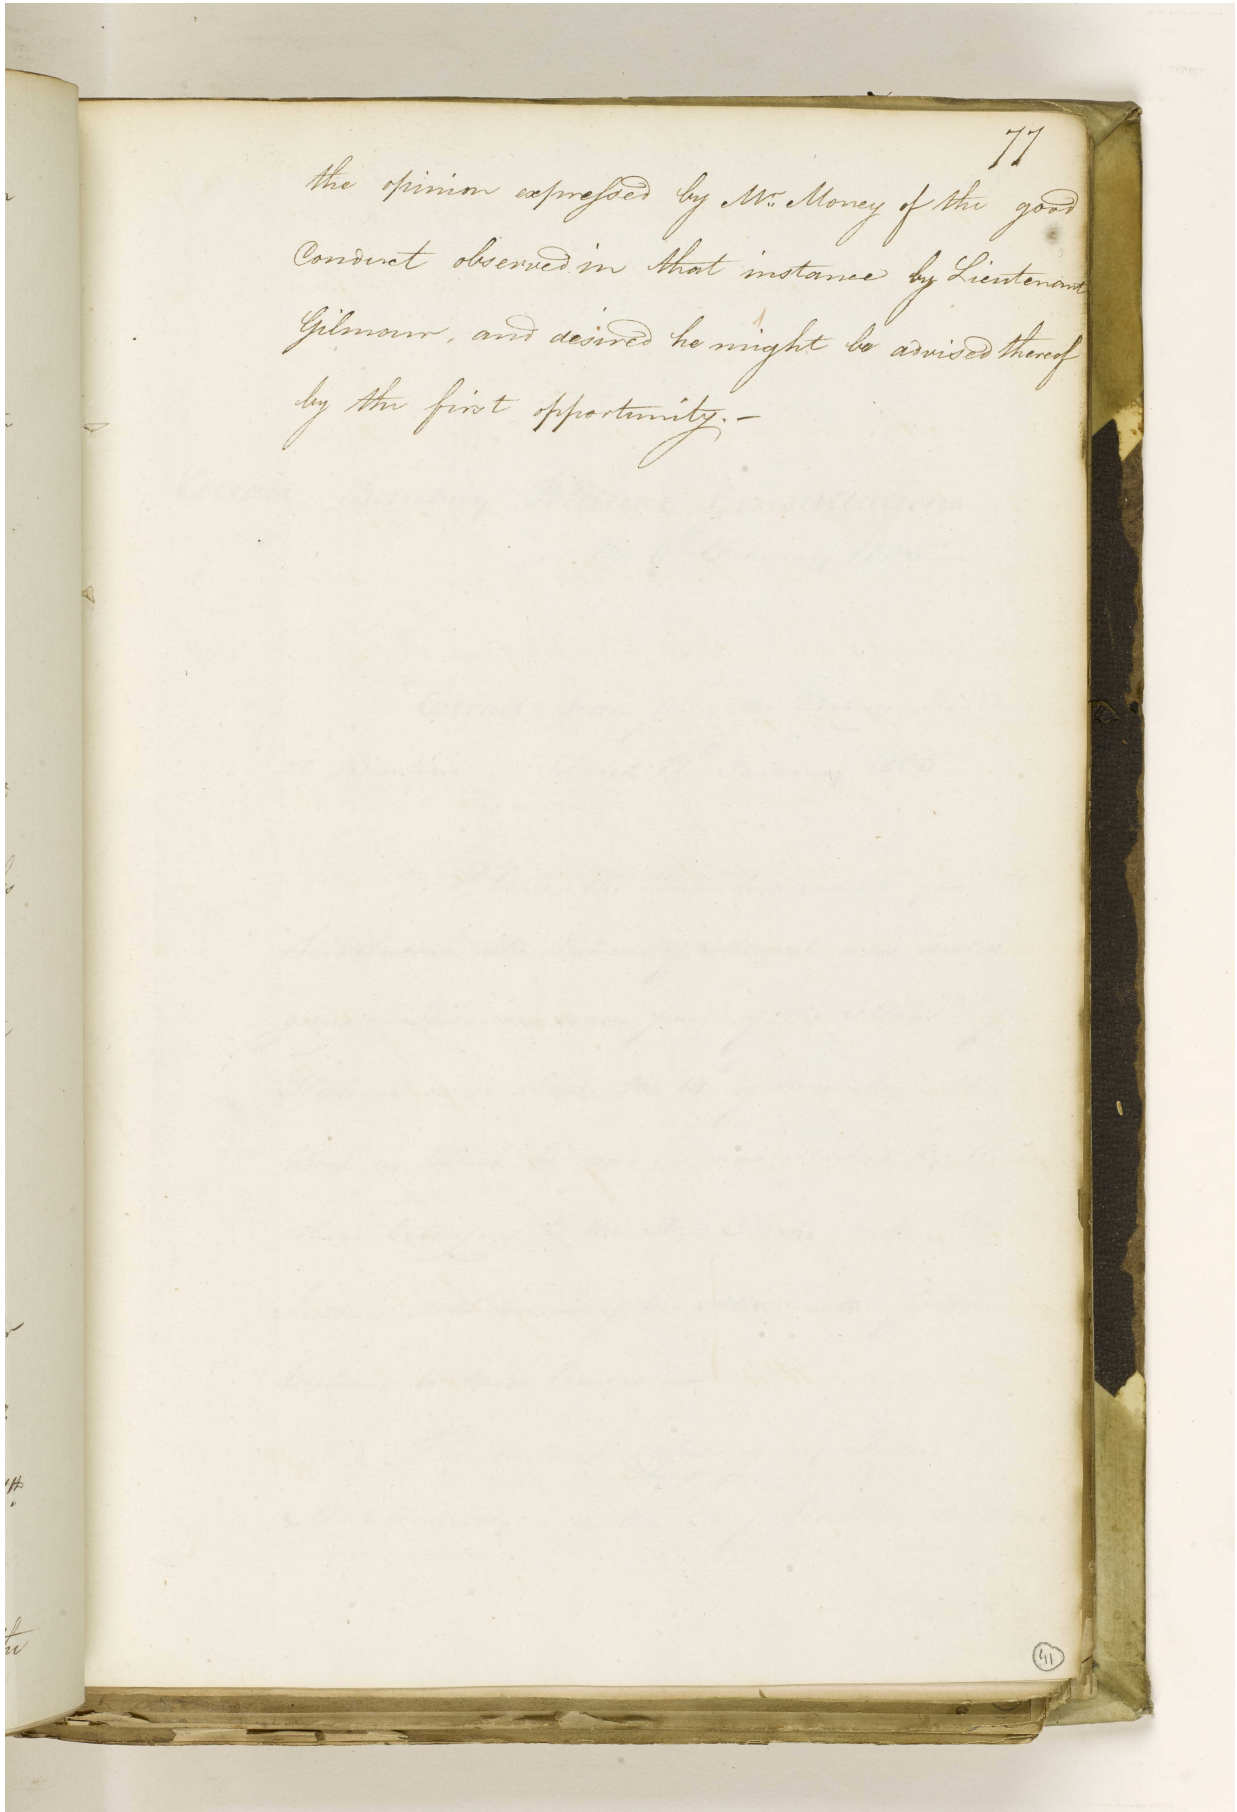 77
the opinion expressed by Mr. Money of the good
Conduct observed in that instance by Lieutenant
Gilmour, and desired he might be advised thereof
by the first opportunity. —
41